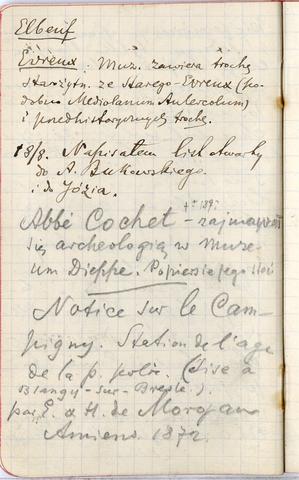 Elbeuf
Evreux: Muz. zawiera trochę
starożytn. ze Starego-Evreux (po-
dobno Mediolanum Aulercolum)
i przedhistorycznych trochę.
18/8. Napisałem list otwarty
do A. Bukowskiego.
i do Józia.
Abbé Cochet – zajmował
się archeologią w Muze-
um Dieppe. Popiersie jego stoi
Notice sur le Cam-
pigny. Station de l'age
de la p. polie. (sise à
Blangy-sur-Bresle.).
par E. & H. de Morgan
Amiens. 1872.